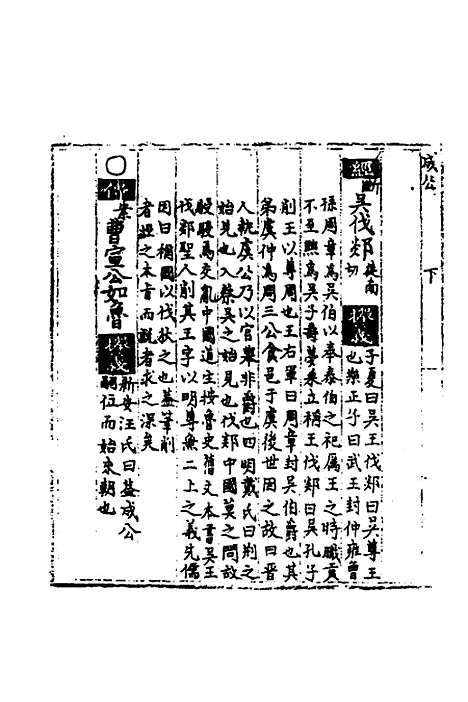 成公
下
經
斷
吳伐郯
談南切
子夏曰吳王伐郯曰吳尊王
也樂正子曰武王封仲雍曾
孫周章為吳伯以奉泰伯之祀厲王之時職貢
不至黜為吳子壽夢乘立稱王伐郯曰吳孔子
削王以尊周也王右軍曰周章封吳伯爵也其
弟虞仲為周三公食邑于虞後世因之故曰晉
人執虞公乃以官舉非爵也四明戴氏曰荊之
始見也入蔡吳之始見也伐郯中國莫之問故
駸駸為交亂中國道主接魯史舊文本書吳王
伐郯聖人削其王字以明尊無二上之義先儒
因曰稱國以伐狄之也蓋筆削
者迸之本旨而說者求之深矣
○
業
曹宣公如魯
新安汪氏曰蓋成公
嗣位而始來朝也